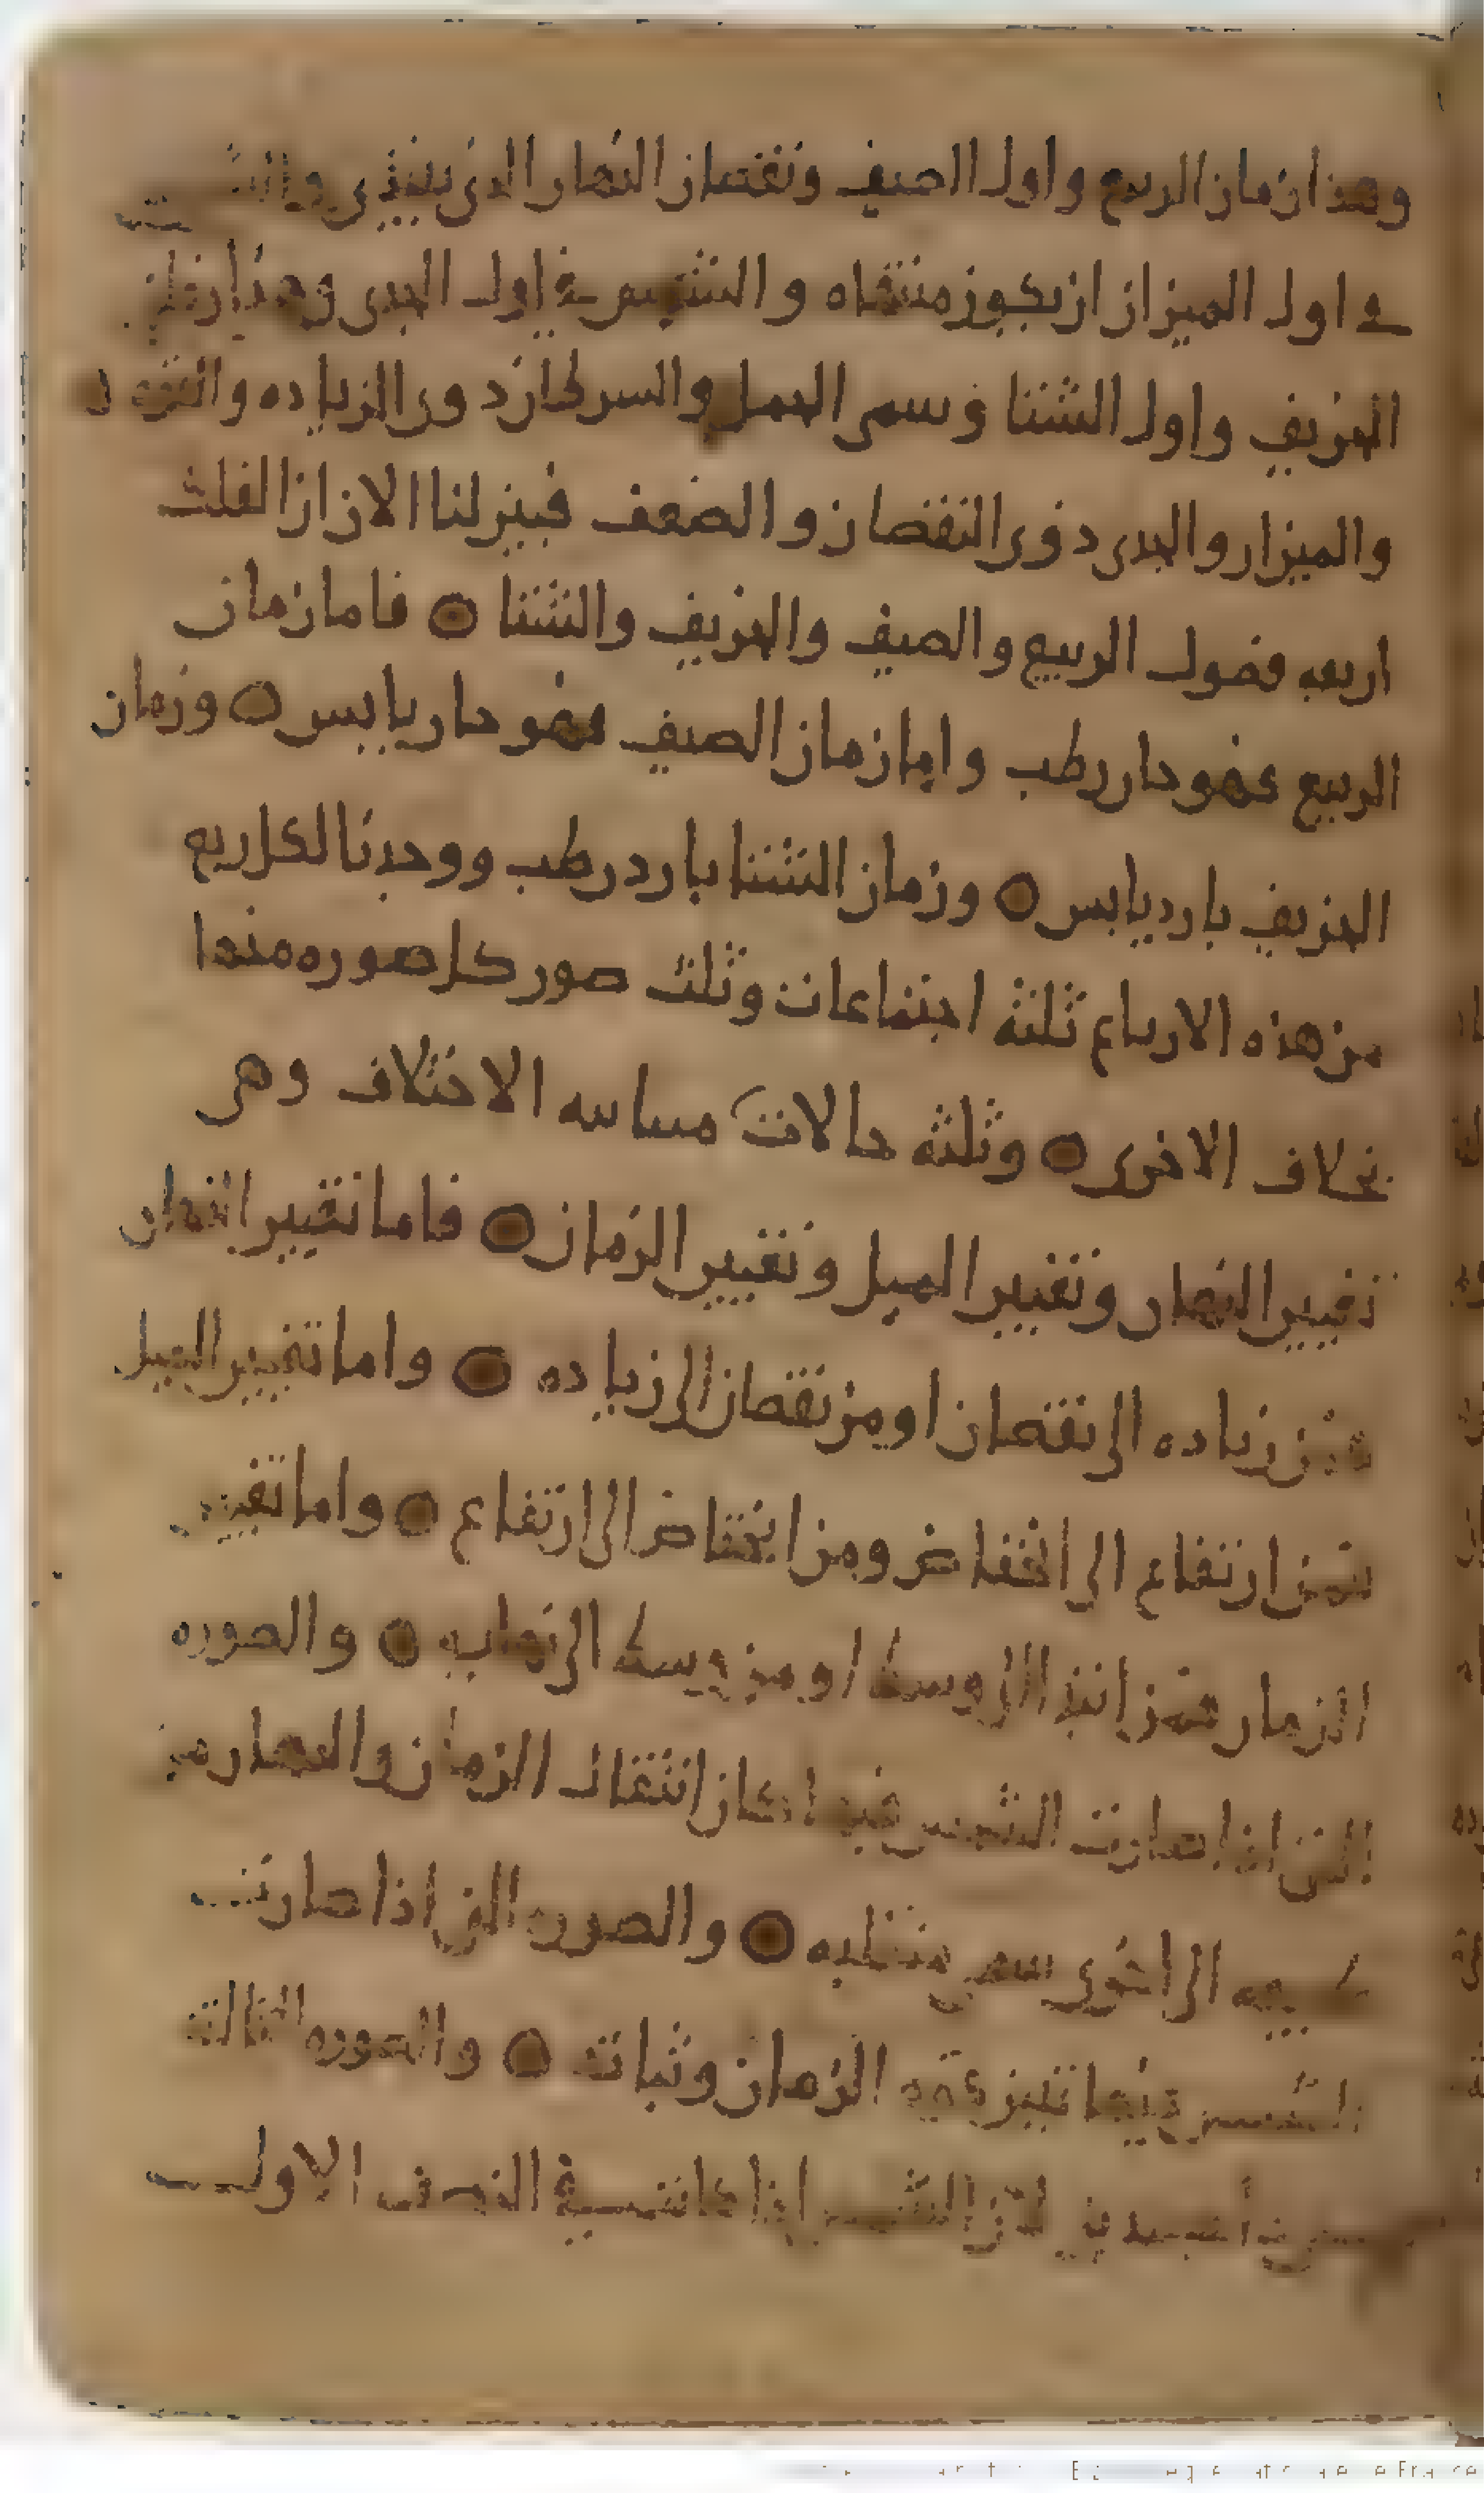 وهذا زمان الربيع واول الصيف ونقصان النهار الذى يبتدى
فى اول الميزان ان يكون منتهاه والشمس فى اول الجدى وهذا زمان
الخريف واول الشتا فسمى الحمل والسرطان ذوى الزياده
والميزان والجدى ذوى النقصان والضعف فبين لنا الان ان الفلك
اربعه فصول الربيع والصيف والخريف والشتا ○ فاما زمان
الربيع فهو حار رطب واما زمان الصيف فهو حار يابس ○ وزمان
الخريف بارد يابس ○ وزمان الشتا بارد رطب ووجدنا لكل ربع
من هذه الارباع ثلثه اجتماعات وثلث صور كل صوره منها
بخلاف الاخرى ○ وثلثه حالات الاختلاف وهى
تغيير النهار وتغيير الميل وتغيير الزمان ○ فاما تغيير النهار
فمن زياده الى نقصان او من نقصان الى زياده ○ واما تغيير الميل
فمن ارتفاع الى انخفاض ومن انخفاض الى ارتفاع ○ واما تغيير
الزمان فمن ابتدا الى وسط او من وسط الى نهايه ○ والصوره
التى اذا صارت الشمس فيها كان انتقال الزمان والنهار من
طبيعه الى اخرى سمى منقلبه ○ والصوره التى اذا صارت
الشمس فيها تبين قوه الزمان وثباته ○ والصوره الثالثه
لان الشمس اذا كانت فى النصف الاول